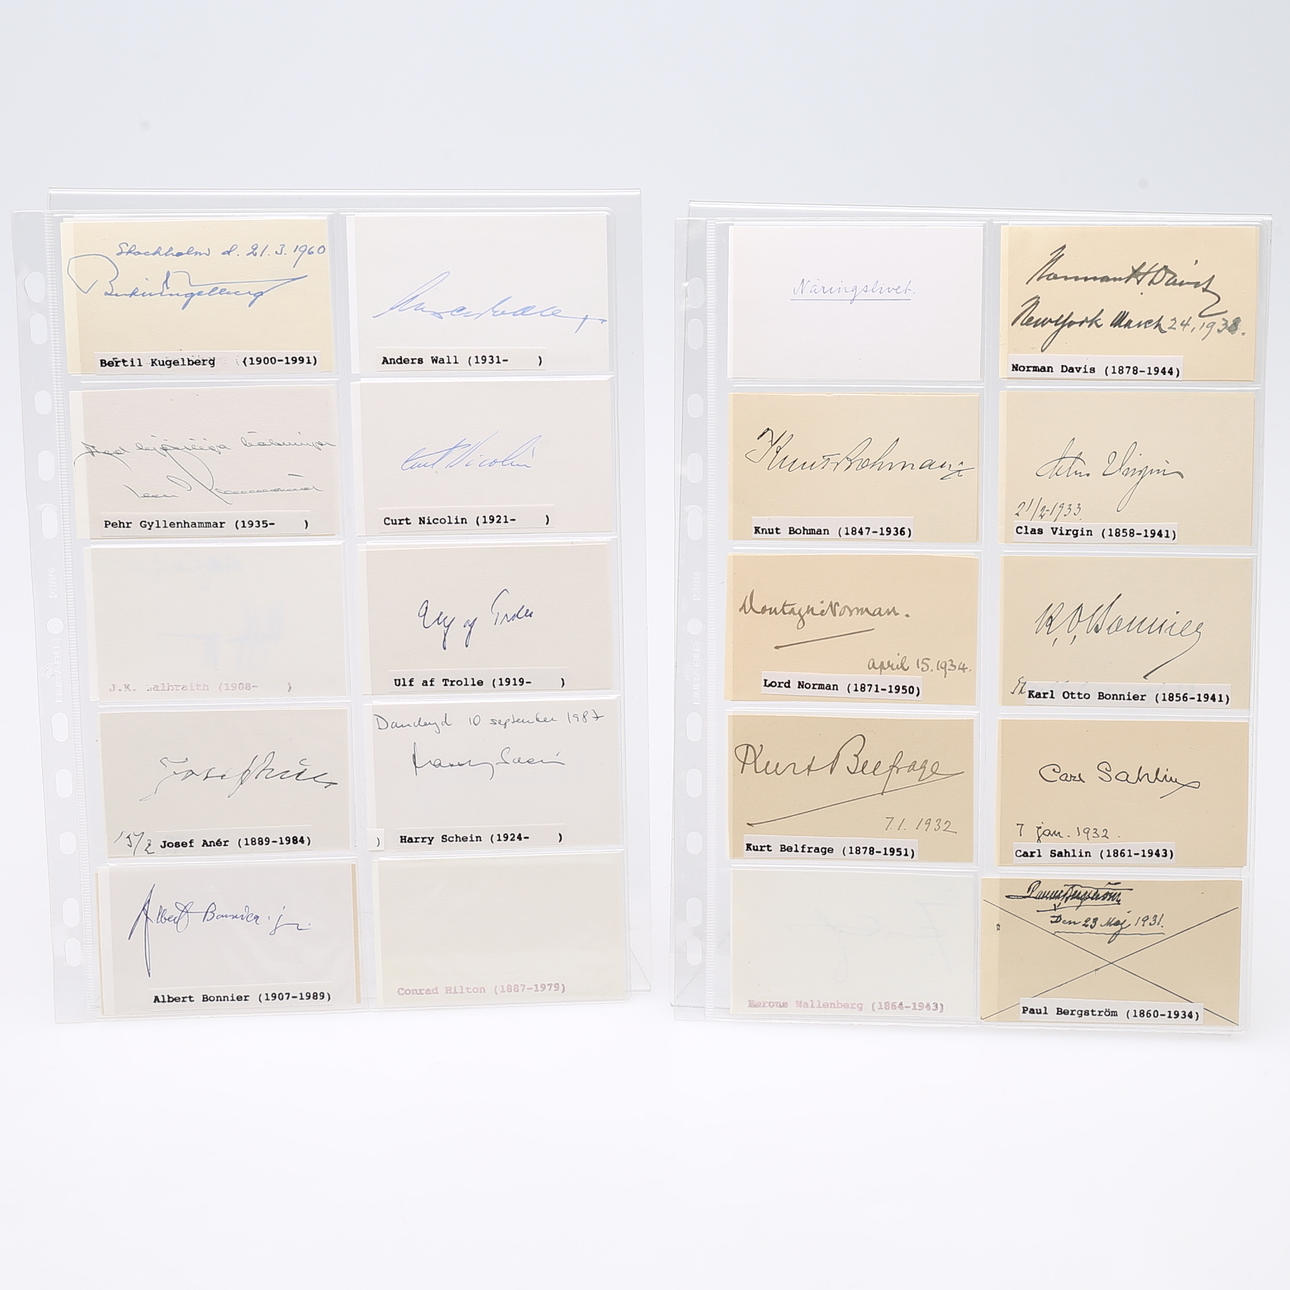 Stockholm d. 21.3.1960
Bertil Kugelberg
Bertil Kugelberg (1900-1991)
Anders Wall
Anders Wall (1931- )
Med hjärtliga hälsningar
Pehr Gyllenhammar (1935- )
Curt Nicolin
Curt Nicolin (1921- )
J.K. Galbraith (1908- )
Ulf af Trolle
Ulf af Trolle (1919- )
Josef Anér
15/2
Josef Anér (1889-1984)
)
Danderyd 10 september 1987
Harry Schein
Harry Schein (1924- )
Albert Bonnier jr.
Albert Bonnier (1907-1989)
Conrad Hilton (1887-1979)
Näringslivet.
Norman H Davis
New York March 24, 1938.
Norman Davis (1878-1944)
Knut Bohman
Knut Bohman (1847-1936)
Clas Virgin
21/2-1933
Clas Virgin (1858-1941)
Montagu Norman.
april 15. 1934.
Lord Norman (1871-1950)
K.O. Bonnier
Karl Otto Bonnier (1856-1941)
Kurt Belfrage
7.1. 1932
Kurt Belfrage (1878-1951)
Carl Sahlin
7 jan. 1932.
Carl Sahlin (1861-1943)
Marcus Wallenberg (1864-1943)
Den 23 Maj 1931.
Paul Bergström (1860-1934)